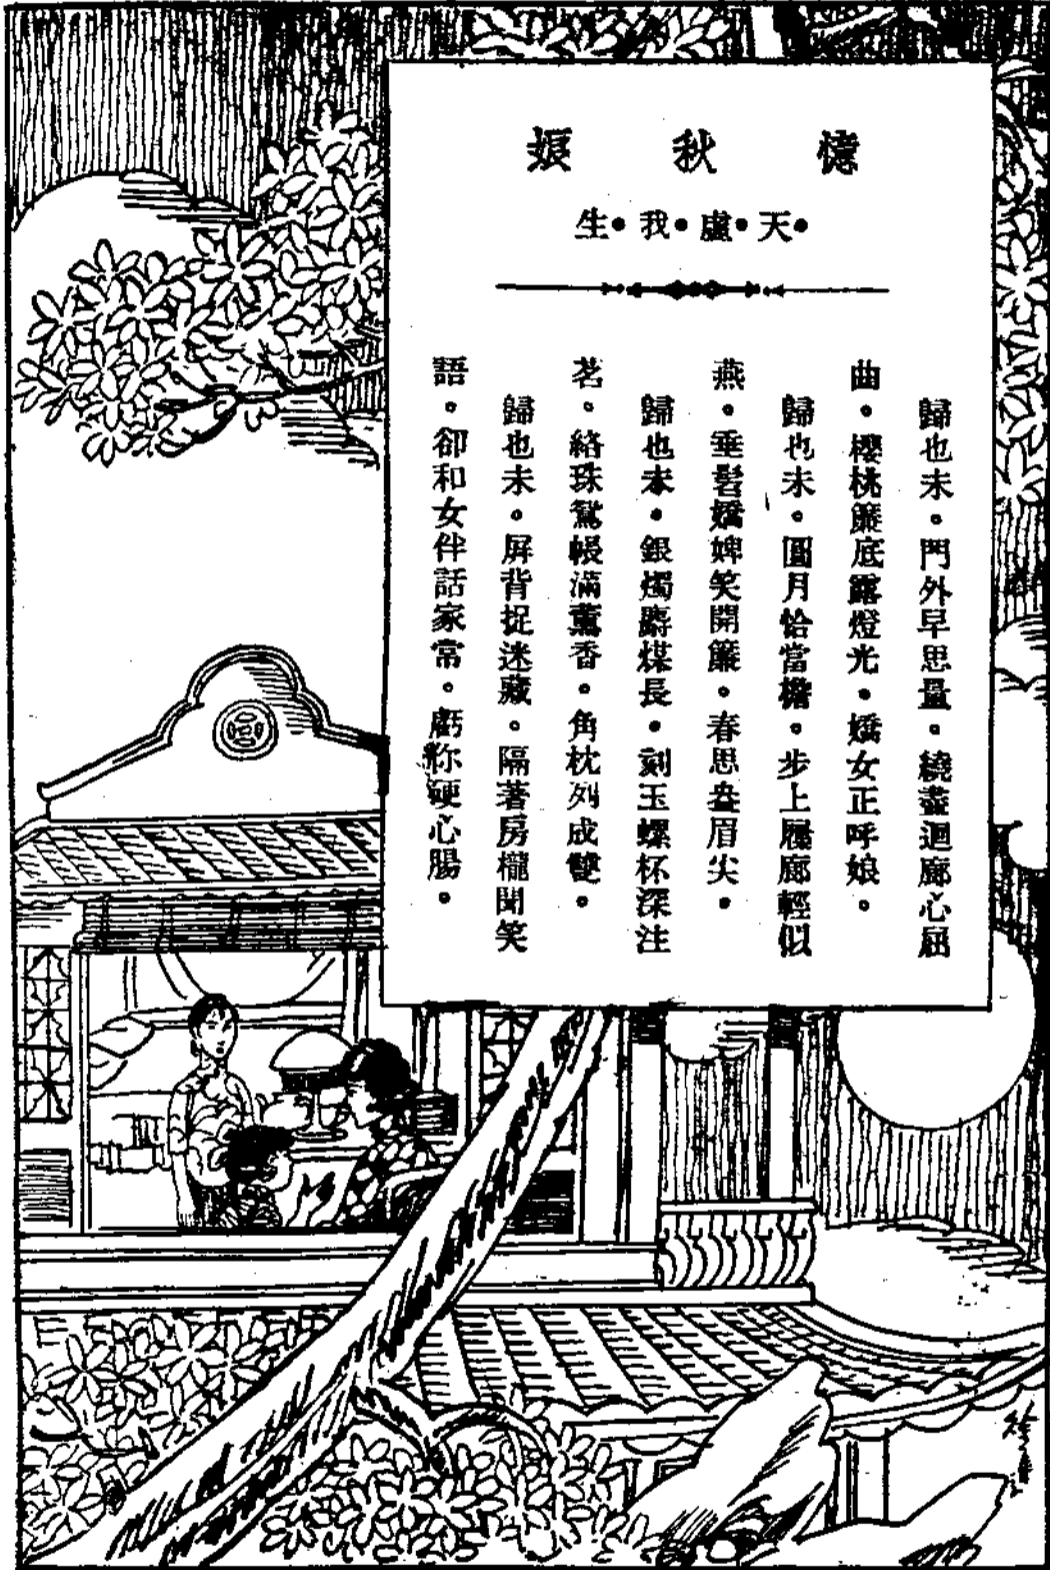 憶秋娘
天•虛•我•生•
歸也未。門外早思量。繞盡迴廊心屈
曲。櫻桃簾底露燈光。嬌女正呼娘。
歸也未。圓月恰當檐。步上屧廊輕似
燕。垂髫嬌婢笑開簾。春思盎眉尖。
歸也未。銀燭麝煤長。刻玉螺杯深注
茗。絡珠鴛帳滿薰香。角枕列成雙。
歸也未。屏背捉迷藏。隔著房櫳聞笑
語。卻和女伴話家常。虧你硬心腸。